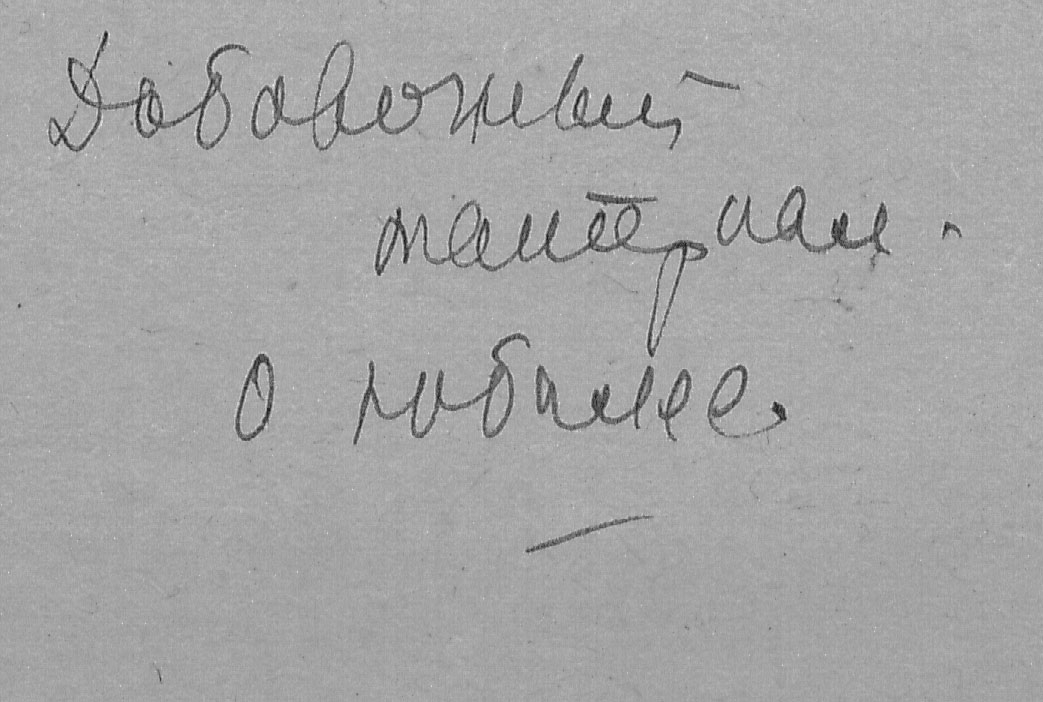 Добавочный
материал.
о юбилее.